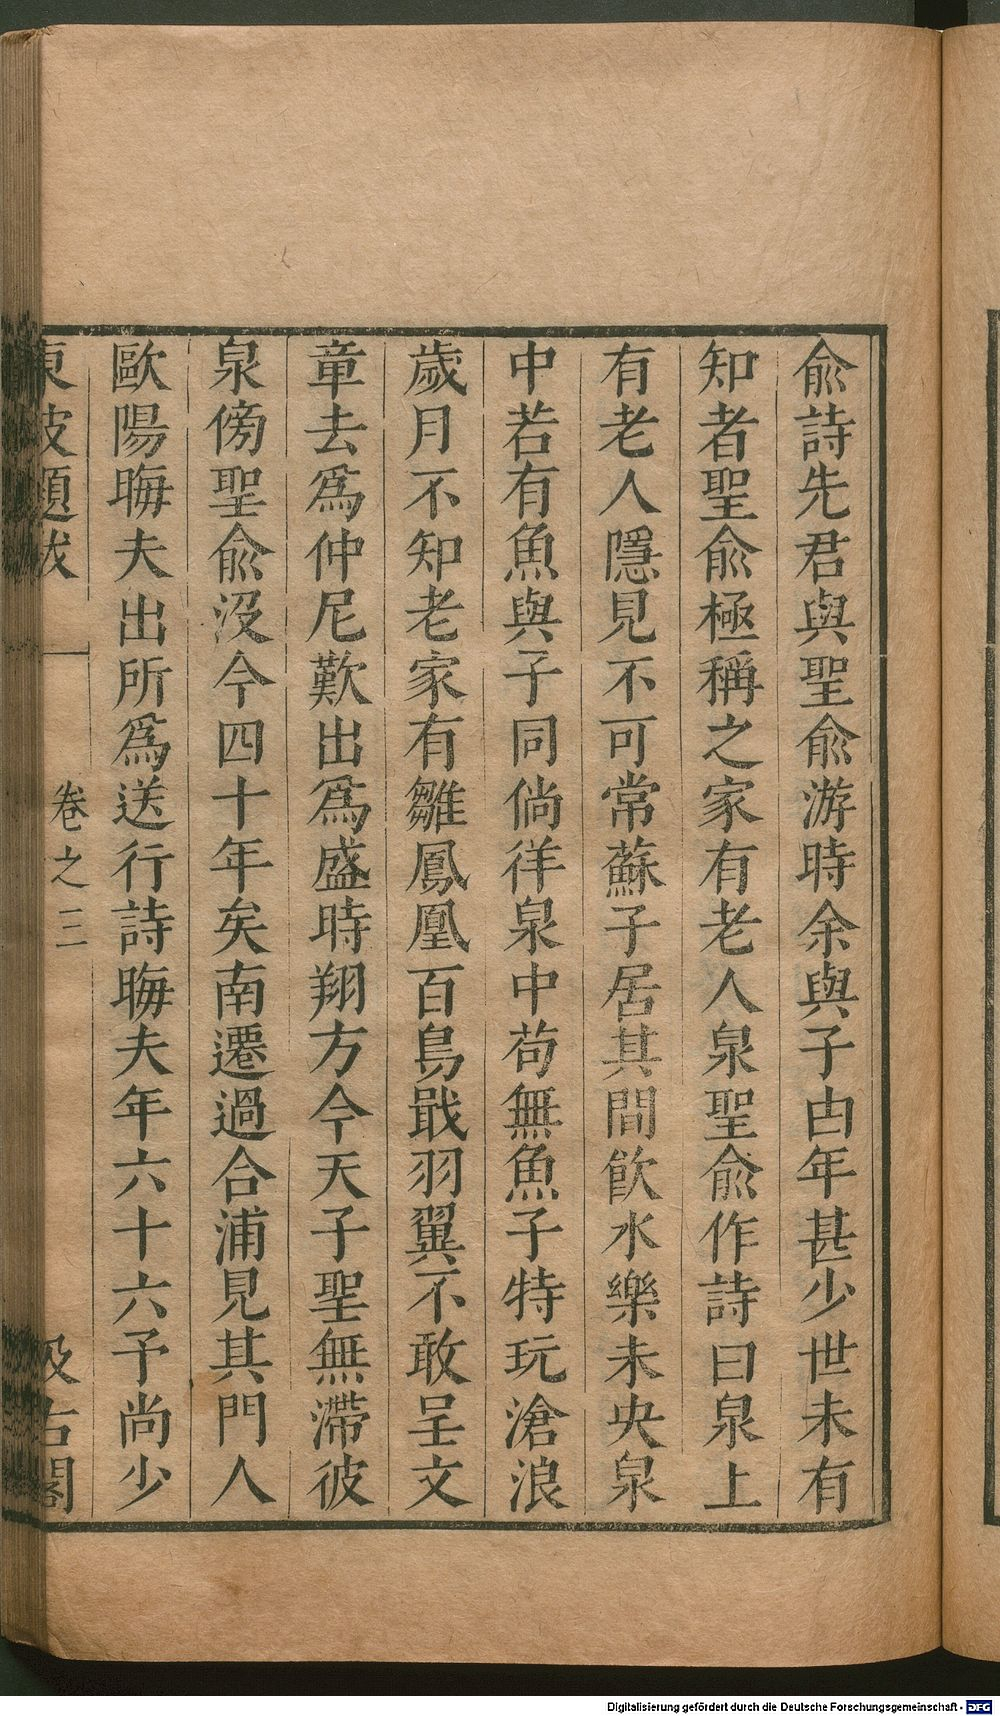 俞詩先君與聖俞游時余與子由年甚少世未有
知者聖俞極稱之家有老人泉聖俞作詩曰泉上
有老人隱見不可常蘇子居其間飲水樂未央泉
中若有魚與子同倘徉泉中茍無魚子特玩滄浪
歲月不知老家有雛鳳凰百鳥戢羽翼不敢呈文
章去爲仲尼歎出爲盛時翔方今天子聖無滯彼
泉傍聖俞沒今四十年矣南遷過合浦見其門人
歐陽晦夫出所爲送行詩晦夫年六十六予尚少
東坡題跋 卷之三 汲古閣
Digitalisierung gefördert durch die Deutsche Forschungsgemeinschaft - DFG